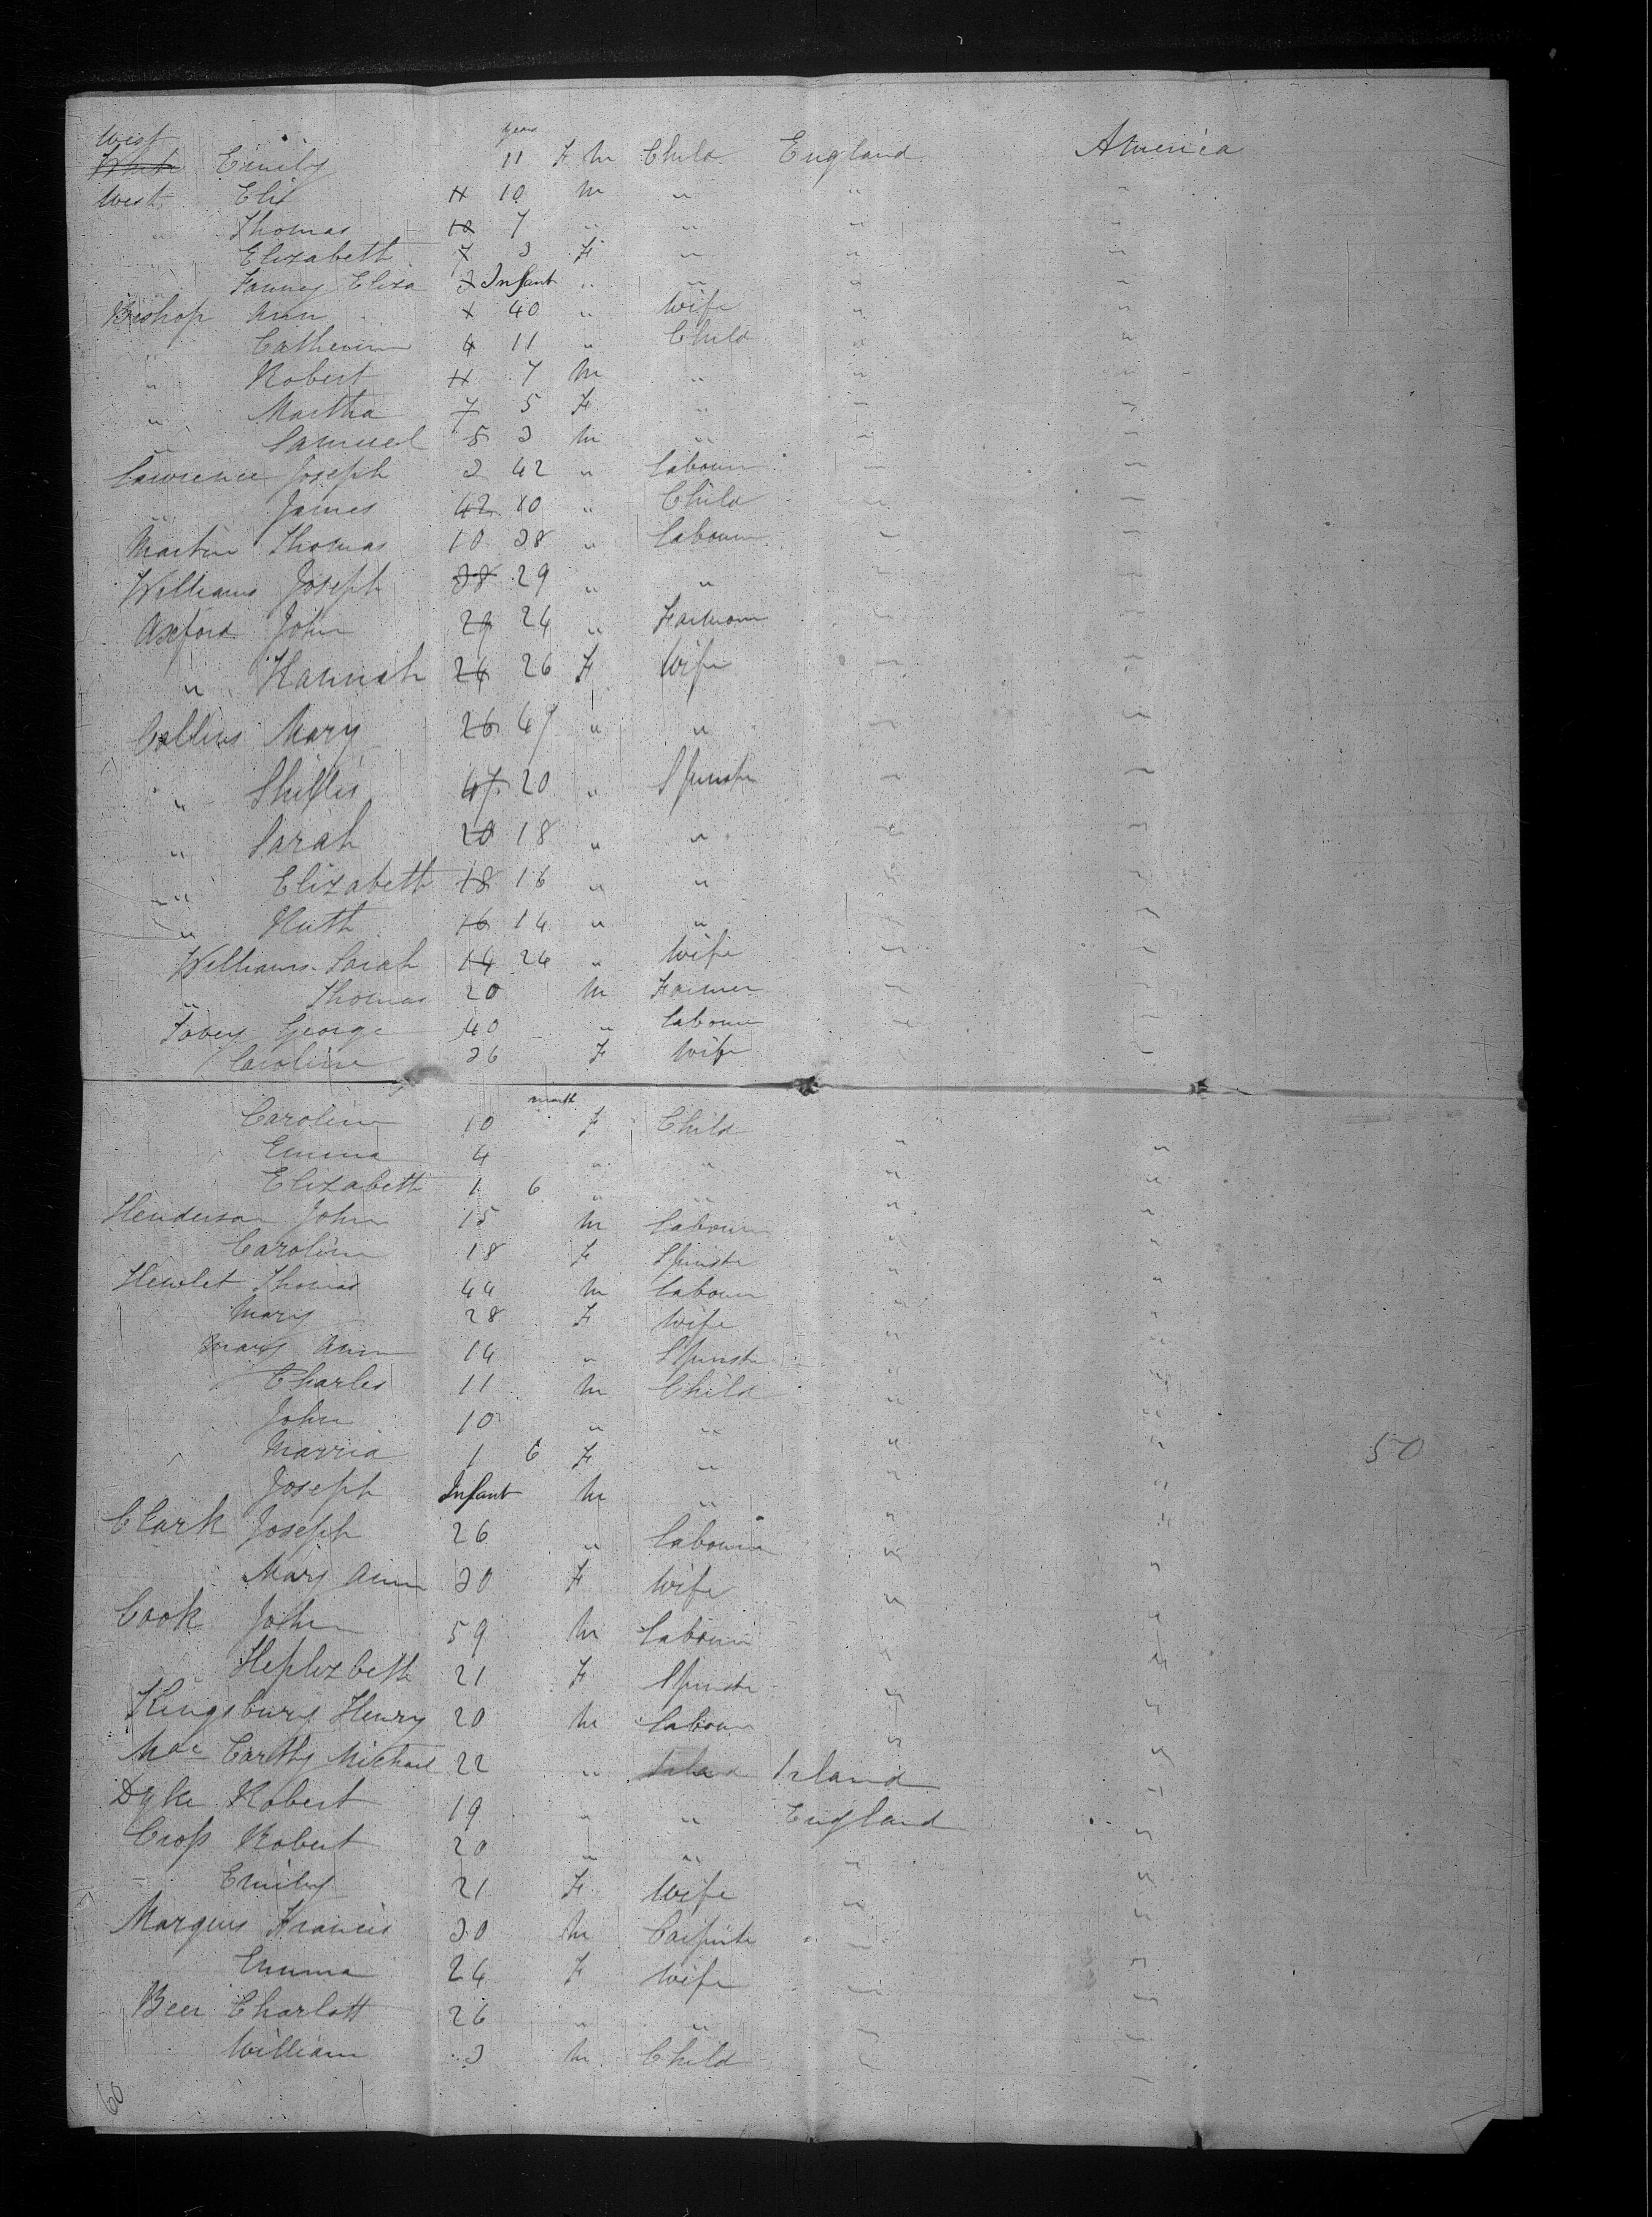 West years
White Emily 11 F M Child England America
West Eli 11 10 M " " "
" Thomas 10 7 " " " "
" Elizabeth 7 3 F " " "
Fanny Eliza 3 Infant " " " "
Bishop Ann 40 " Wife " "
" Catherine 4 11 " Child " "
" Robert 11 7 M " " "
" Martha 7 5 F " " "
" Samuel 5 3 M " " "
Lawrence Joseph 3 42 " Labourer " "
" James 42 10 " Child " "
Martin Thomas 10 38 " Labourer " "
Williams Joseph 38 29 " " " "
Axford John 29 24 " " "
" Hannah 24 26 F Wife " "
Collins Mary 26 47 " " " "
" 47 20 " Spinster " "
" Sarah 20 18 " " " "
" Elizabeth 18 16 " " " "
" Ruth 16 14 " " " "
Williams Sarah 14 24 " Wife " "
" Thomas 20 M Farmer " "
Tovey George 40 " Labour " "
Caroline 36 F Wife " "
month
Caroline 10 F Child " "
Emma 4 " " " "
Elizabeth 1 6 " " " "
Henderson John 15 M Labour " "
Caroline 18 F Spinster " "
Hewlet Thomas 44 M Labour " "
Mary 28 F Wife " "
Mary Ann 14 " Spinster " "
Charles 11 M Child " "
John 10 " " " "
Marria 1 6 F " " " 50
Joseph Infant M " " "
Clark Joseph 26 " Labour " "
Mary Ann 30 F Wife " "
Cook John 59 M Labour " "
Hephzbeth 21 F Spinster " "
Kingsbury Henry 20 M Labour " "
Mac Carthy Michael 22 " Irland "
Dyke Robert 19 " " England "
Cross Robert 20 " " " "
Emily 21 F Wife " "
Marques Francis 30 M Carpinter " "
Emma 24 F Wife " "
Beer Charlott 26 " " " "
William 3 M Child " "
60